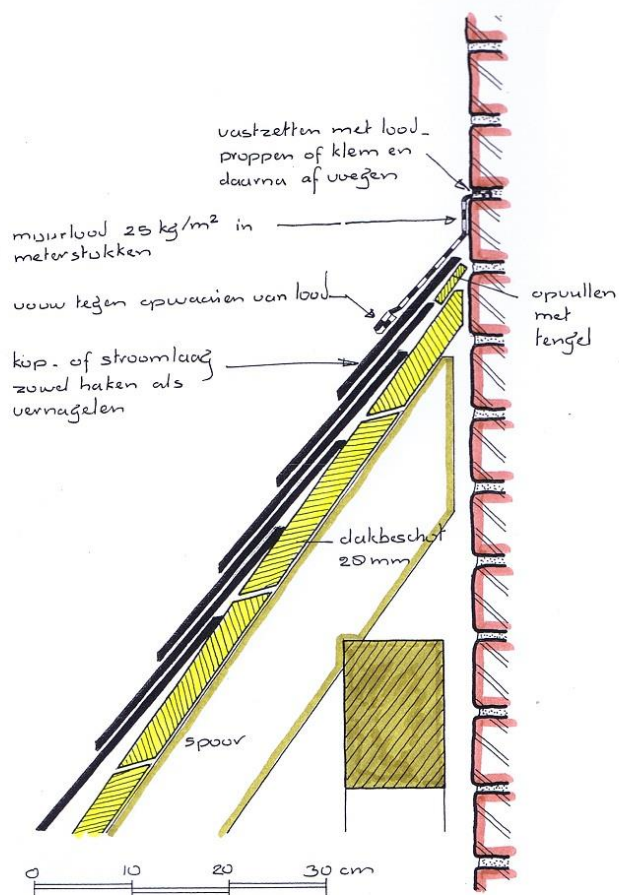 vastzetten met lood-
proppen of klem en
daarna af voegen
muurlood 25 kg/m² in
meterstukken
vouw tegen opwaaien van lood
opvullen
met
tengel
kop- of stroomlaag
zowel haken als
vernagelen
dakbeschot
28 mm
spoor
0 10 20 30 cm